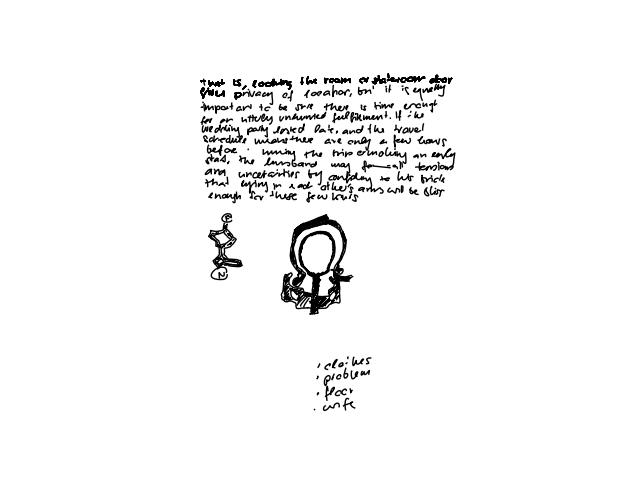 that is, locking the room or stateroom door
gives privacy of location, but it is equally
important to be sure there is time enough
for an utterly unhurried fulfillment. If the
wedding party lasted late, and the travel
schedule means there are only a few hours
before the trip making an early
start, the husband may forestall tensions
and uncertainties by confiding to his bride
that lying in each other's arms will be bliss
enough for these few hours
2
• clothes
• problem
• floor
• wife